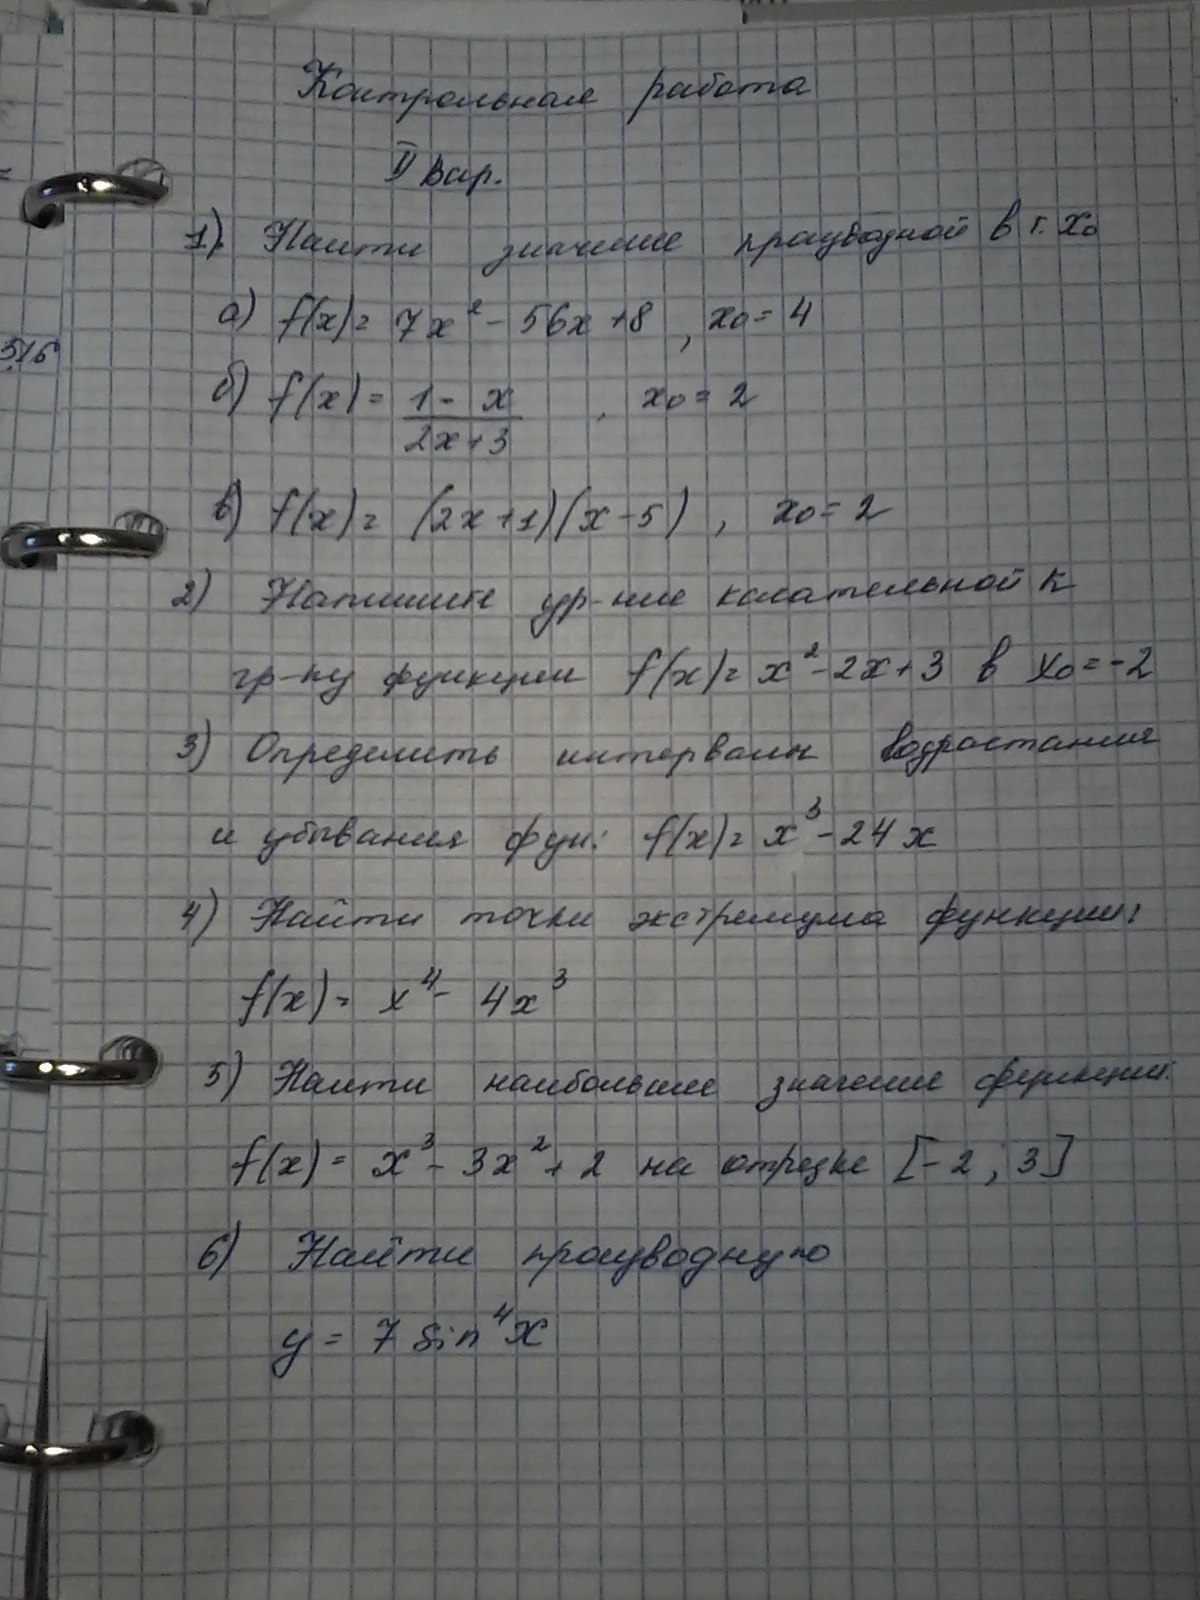 Контрольная работа
II Вар.
1) Найти значение производной в т. x₀
а) f(x) = 7x² - 56x + 8, x₀ = 4
б) f(x) = (1 - x)/(2x + 3), x₀ = 2
в) f(x) = (2x + 1)(x - 5), x₀ = 2
2) Напишите ур-ние касательной к
гр-ку функции f(x) = x² - 2x + 3 в x₀ = -2
3) Определить интервалы водростания
и убывания фун: f(x) = x³ - 24x
4) Найти точки экстремума функции:
f(x) = x⁴ - 4x³
5) Найти наибольшее значение функции:
f(x) = x³ - 3x² + 2 на отрезке [-2; 3]
6) Найти производную
y = 7 sin⁴x